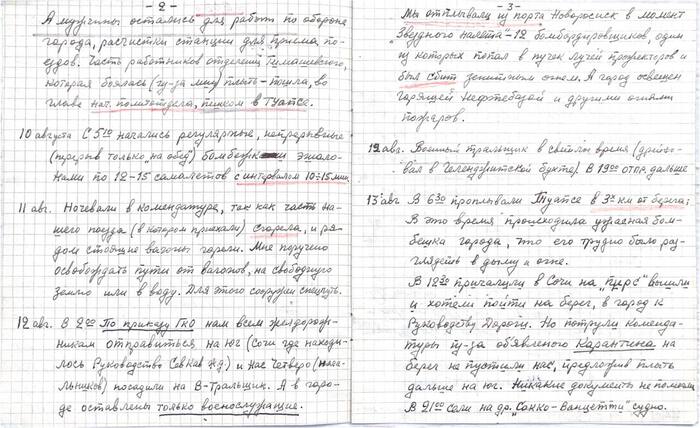 - 2 -
А мужчины остались для работ по обороне
города, расчистки станции для приема по-
ездов. Часть работников отделения Тимашевского,
которая боялась (из-за мин) плыть - пошла, во
главе нач. политотдела, пешком в Туапсе.
10 августа С 5 00 начались регулярные, непрерывные
(перерыв только "на обед") бомбежки эшело-
нами по 12-15 самолетов с интервалом 10÷15 мин.
11 авг. Ночевали в комендатуре, так как часть на-
шего поезда (в котором приехали) сгорела, и ря-
дом стоящие вагоны горели. Мне поручено
освобождать пути от вагонов, на свободную
землю или в воду. Для этого сооружаем
12 авг. В 2 00 По приказу ГКО нам всем железнодорож-
никам отправиться на юг (Сочи где находи-
лось Руководство СевКав ЖД) и нас четверо (нача-
льников) посадили на В-Тральщик. А в горо-
де оставлены только военнослужащие.
- 3 -
Мы отплывали из порта Новоросиск в момент
"Звездного налета" - 12 бомбардировщиков, один
из которых попал в пучек лучей прожекторов и
был сбит зенитным огнем. А город освещен
горящей Нефтебазой и другими огнями
пожаров.
12 авг. Военный тральщик в светлое время (дрейфо-
вал в Геленджикской бухте). В 19 00 отпл. дальше
13 авг В 6 30 проплывали Туапсе в 3х км от берега;
В это время происходила ужасная бом-
бежка города, что его трудно было раз-
глядеть в дыму и огне.
В 12 30 причалили в Сочи на "пирс" вышли
и хотели пойти на берег, в город к
Руководству Дороги. Но патрули Коменда-
туры из-за объявленого Карантина на
берег не пустили нас, предложив плыть
дальше на юг. Никакие документы не помогли.
В 21 00 сели на др. "Сакко-Ванцетти" судно.